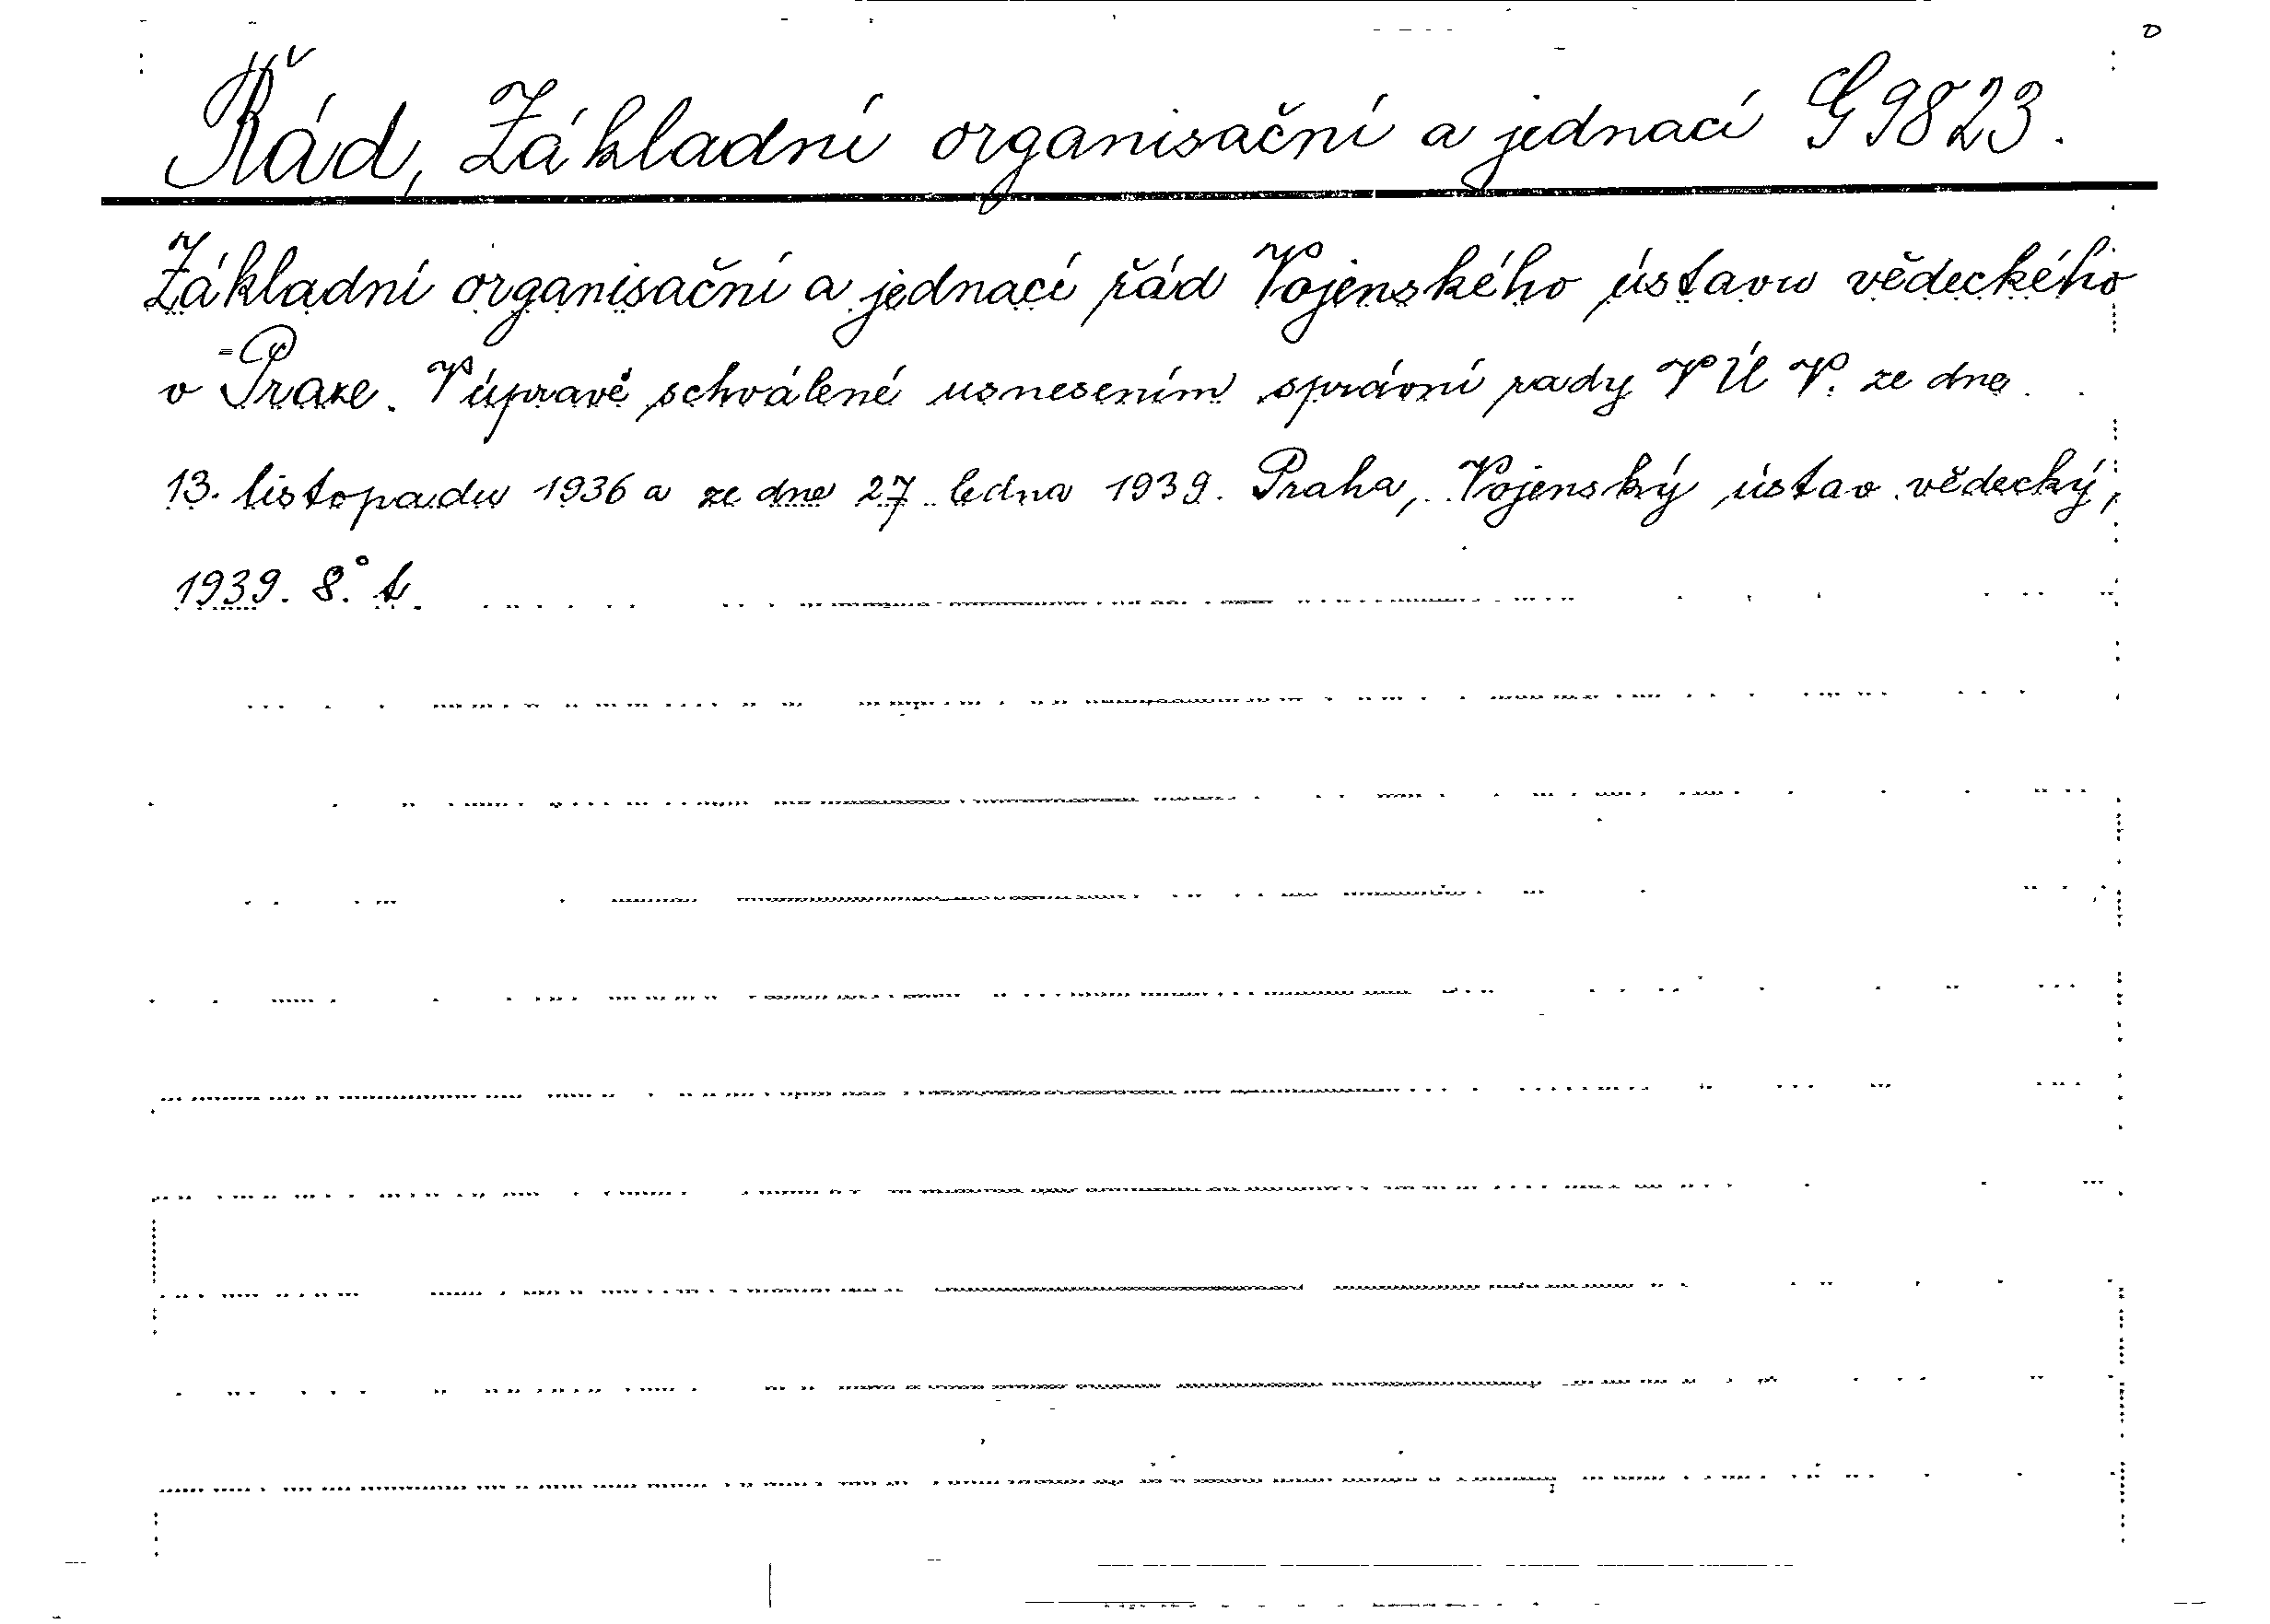 Řád, Základní organisační a jednací G 9823.
Základní organisační a jednací řád Vojenského ústavu vědeckého
v Praze. V úpravě schválené usnesením správní rady V Ú V. ze dne
13. listopadu 1936 a ze dne 27. ledna 1939. Praha, Vojenský ústav vědecký,
1939. 8.° t.